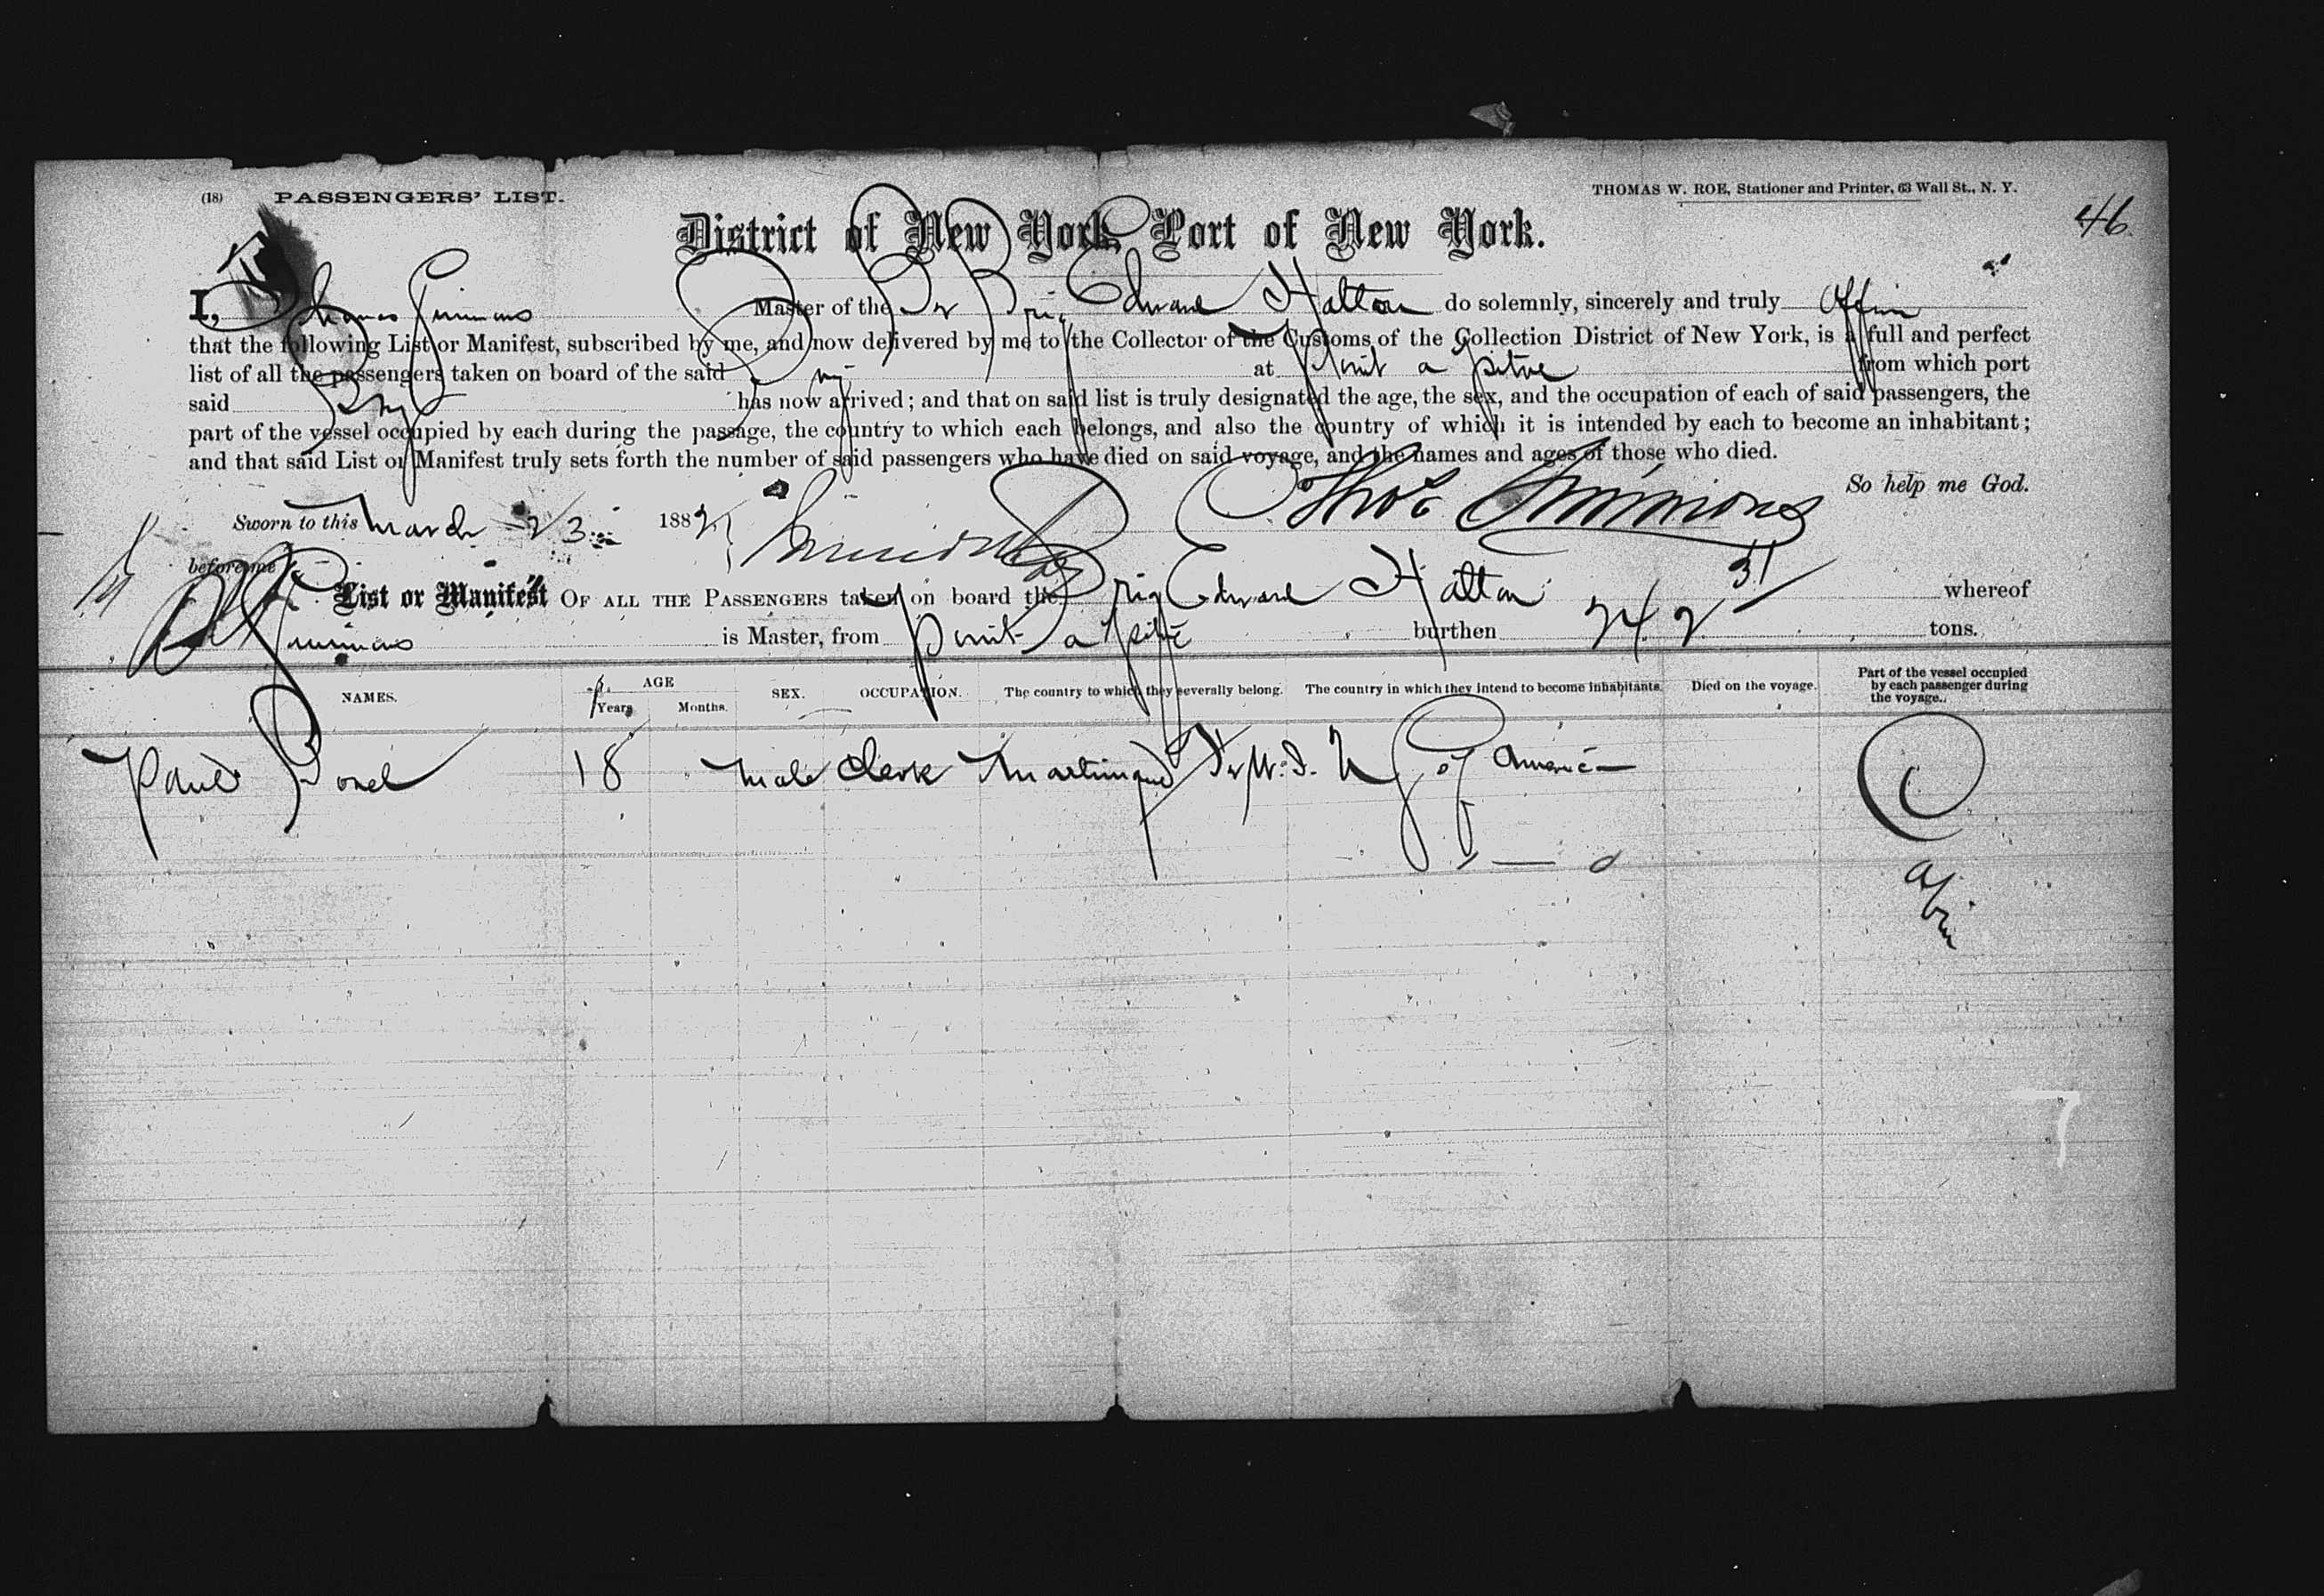 (18) PASSENGERS' LIST.
THOMAS W. ROE, Stationer and Printer, 63 Wall St., N. Y.
46.
District of New York, Port of New York.
I, Thomas Simmons Master of the Br Brig Edward Hatton do solemnly, sincerely and truly Affirm
that the following List or Manifest, subscribed by me, and now delivered by me to the Collector of the Customs of the Collection District of New York, is a full and perfect
list of all the passengers taken on board of the said Brig at Point a Pitre from which port
said Brig has now arrived; and that on said list is truly designated the age, the sex, and the occupation of each of said passengers, the
part of the vessel occupied by each during the passage, the country to which each belongs, and also the country of which it is intended by each to become an inhabitant;
and that said List or Manifest truly sets forth the number of said passengers who have died on said voyage, and the names and ages of those who died.
So help me God.
Sworn to this March 23 1882 Thos Simmons
before me
List or Manifest OF ALL THE PASSENGERS taken on board the Brig Edward Hatton whereof
Simmons is Master, from Point a Pitre burthen 242 31 tons.
NAMES. AGE Years Months. SEX. OCCUPATION. The country to which they severally belong. The country in which they intend to become inhabitants. Died on the voyage. Part of the vessel occupied by each passenger during the voyage.
Paul 18 Male Clerk Martinique Fr W. I. of America Cabin
7